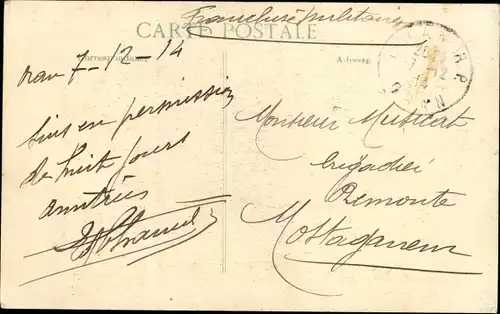 CARTE POSTALE
Franchise militaire
Correspondance
Adresse
Oran 7-12-14
Suis en permission
de huit jours
Amitiés
Monsieur
brigadier
Remonte
Mostaganem